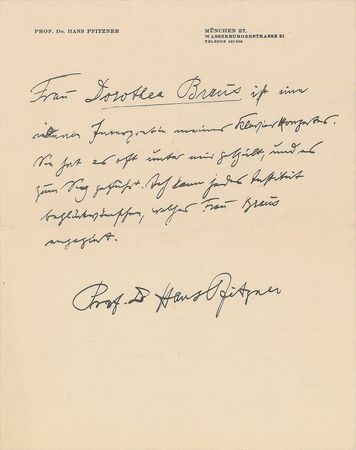 PROF. DR. HANS PFITZNER
MÜNCHEN 27,
WASSERBURGERSTRASSE 21
TELEFON
Frau Dorothea Braus ist eine
ideale Interpretin meines Klavierkonzertes.
Sie hat es oft unter mir gespielt, und es
zum Sieg geführt. Ich kann jedes Institut
beglückwünschen, welches Frau Braus
engagiert.
Prof. D Hans Pfitzner